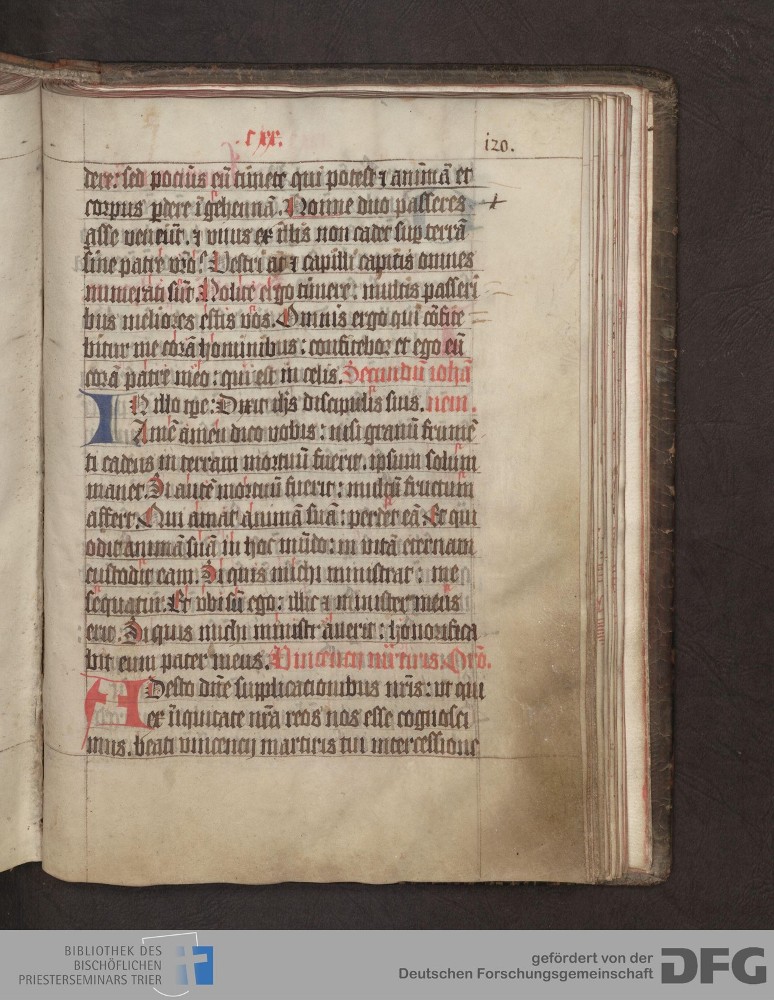 cxx.
120.
dere: sed pocius eū timete qui potest ⁊ animā et
corpus ꝑdere ī gehennā. Nonne duo passeres
asse veneūt. ⁊ vnus ex illis non cadet suꝑ terrā
sine patre vr̄o? Vestri at̄ ⁊ capilli capitis omnes
numerati sūt. Nolite ergo timere: multis passeri
bus meliores estis vos. Omnis ergo qui cōfite
bitur me corā hominibus: confitebor et ego eū
corā patre meo: qui est in celis. Secundū iohā
IN illo tp̄e: Dixit ih̄s discipulis suis. nem.
Amē amen dico vobis: nisi granū frumē
ti cadens in terram mortuū fuerit. ipsum solum
manet. Si autē mortuū fuerit: multū fructum
affert. Qui amat animā suā: perdet eā. Et qui
odit animā suā in hoc mūdo: in vitā eternam
custodit eam. Si quis michi ministrat: me
sequatur. Et vbi sū ego: illic ⁊ minister meus
erit. Si quis michi ministrauerit: honorifica
bit eum pater meus. Vincencij mr̄tiris. Orō.
ADesto dn̄e supplicationibus nr̄is: ut qui
ex iniquitate nr̄a reos nos esse cognosci
mus. beati vincencij martiris tui intercessione
BIBLIOTHEK DES
BISCHÖFLICHEN
PRIESTERSEMINARS TRIER
gefördert von der
Deutschen Forschungsgemeinschaft DFG